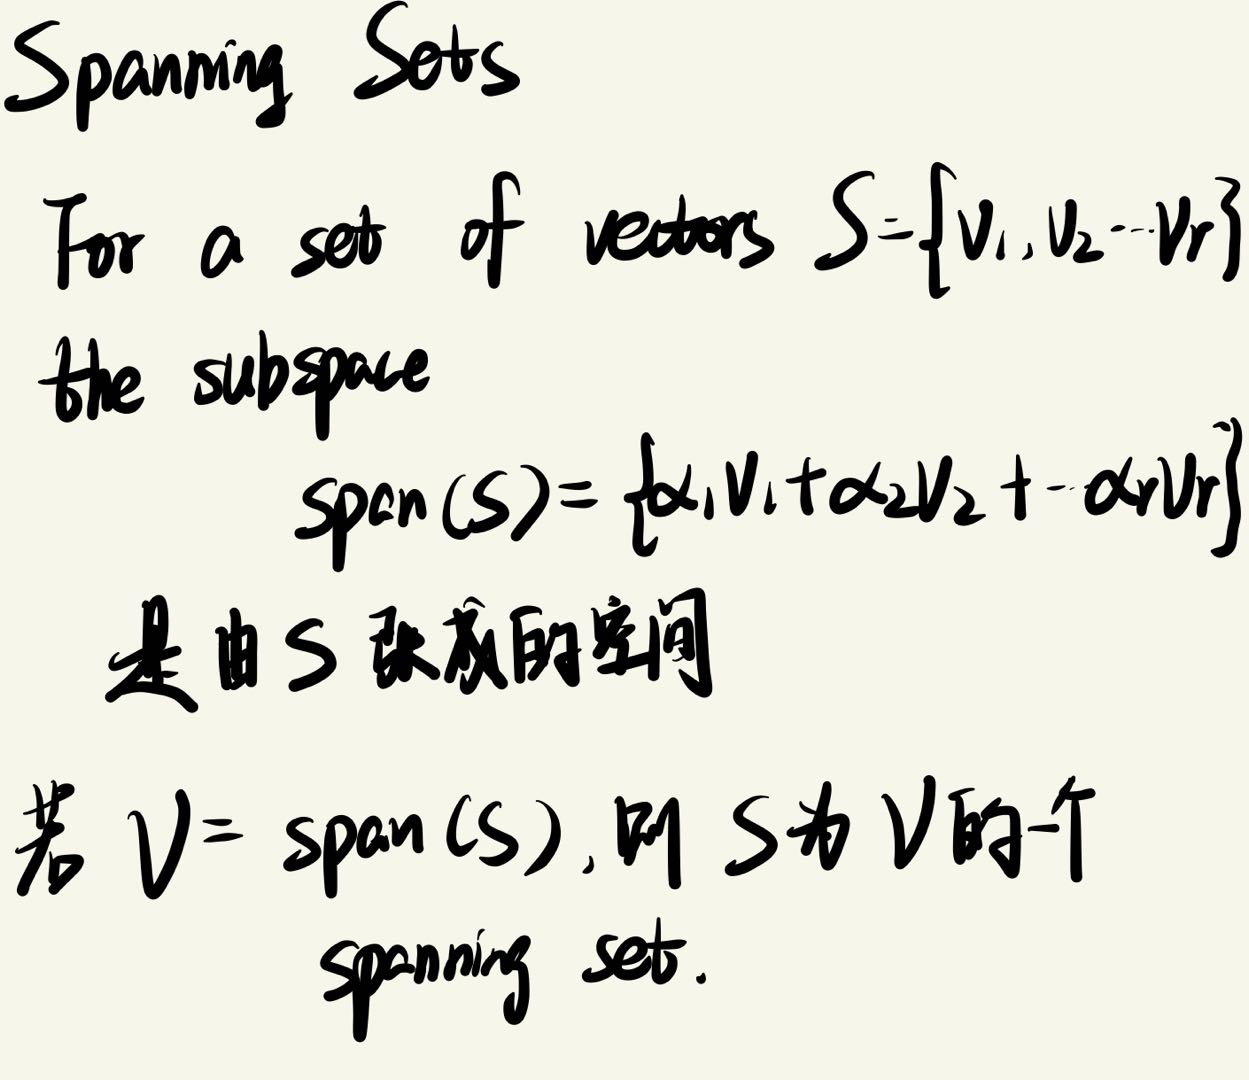 Spanning Sets
For a set of vectors S={v₁,v₂…vr}
the subspace
span(S)={α₁v₁+α₂v₂+…αrvr}
是由S张成的空间
若 V=span(S),则 S为V的一个
spanning set.